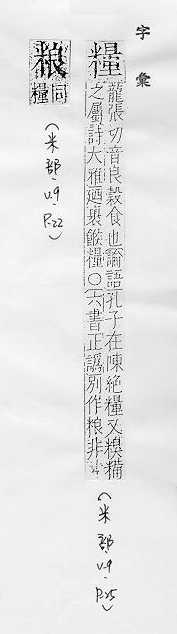 字彙
糧
龍張切音良穀食也論語孔子在陳絕糧又糗糒
之屬詩大雅迺裹餱糧○六書正譌別作粮非
(米部, v.9, P.25)
粮
同
糧
(米部, v.9, P.22)